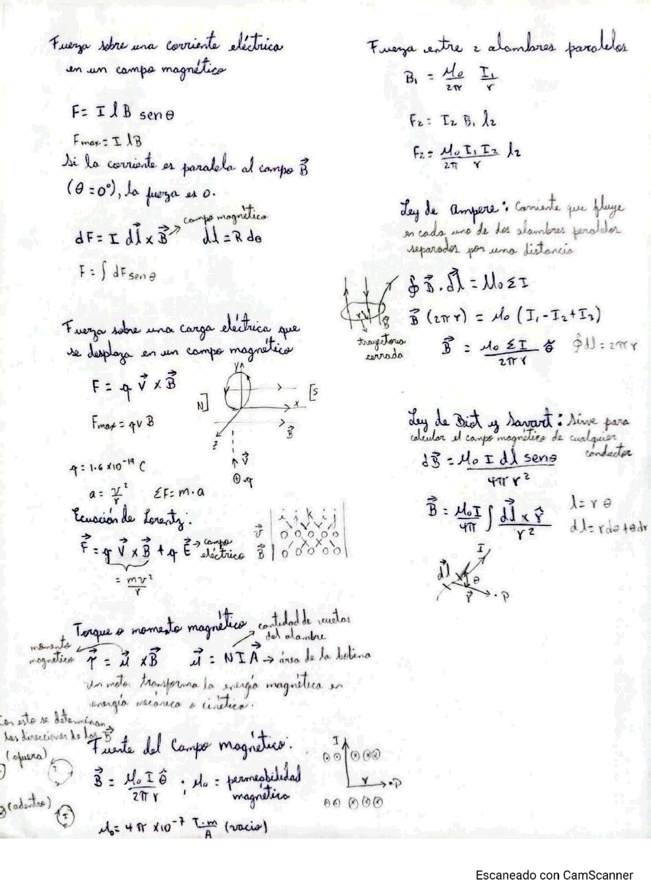 Fuerza sobre una corriente eléctrica
en un campo magnético
F = I l B sen θ
Fmax = I l B
Si la corriente es paralela al campo B⃗
(θ = 0°), la fuerza es 0.
campo magnético
dF = I dl⃗ x B⃗ dl = R dθ
F = ∫ dF sen θ
Fuerza sobre una carga eléctrica que
se desplaza en un campo magnético
F = q V⃗ x B⃗
Fmax = qVB
q = 1.6 x10⁻¹⁹ C
a = v²/r ΣF = m·a
y
N] [S
x
z
B⃗
↑ V⃗
⊕ q
Ecuación de Lorentz:
F⃗ = q V⃗ x B⃗ + q E⃗ → campo eléctrico
= mv²/r
i j k i j
v⃗ 0 0 0 0 0
B⃗ 0 0 0 0 0
Torque o momento magnético
cantidad de vueltas
del alambre
momento
magnético
τ⃗ = μ⃗ x B⃗ μ⃗ = N I A⃗ → área de la bobina
Un motor transforma la energía magnética en
energía mecánica o cinética.
Con esto se determinan
las direcciones de los B⃗
(afuera)
(adentro)
Fuente del Campo magnético:
B⃗ = μ₀ I θ̂ / 2πr ; μ₀ = permeabilidad
magnético
μ₀ = 4π x10⁻⁷ T·m/A (vacío)
I
r P
Fuerza entre 2 alambres paralelos
B₁ = μ₀/2π I₁/r
F₂ = I₂ B₁ l₂
F₂ = μ₀ I₁ I₂ / 2π r l₂
Ley de Ampere: Corriente que fluye
en cada uno de dos alambres paralelos
separados por una distancia
∮ B⃗ · dl⃗ = μ₀ Σ I
B⃗ (2πr) = μ₀ (I₁ - I₂ + I₃)
B⃗ = μ₀ Σ I / 2πr θ̂ ∮dl = 2πr
trayectoria
cerrada
Ley de Biot y Savart: Sirve para
calcular el campo magnético de cualquier
conductor
dB⃗ = μ₀ I dl senθ / 4πr²
B⃗ = μ₀I/4π ∫ dl⃗ x r̂ / r²
l = r θ
dl = rdθ + θdr
I
dl⃗
θ
r⃗ P
Escaneado con CamScanner